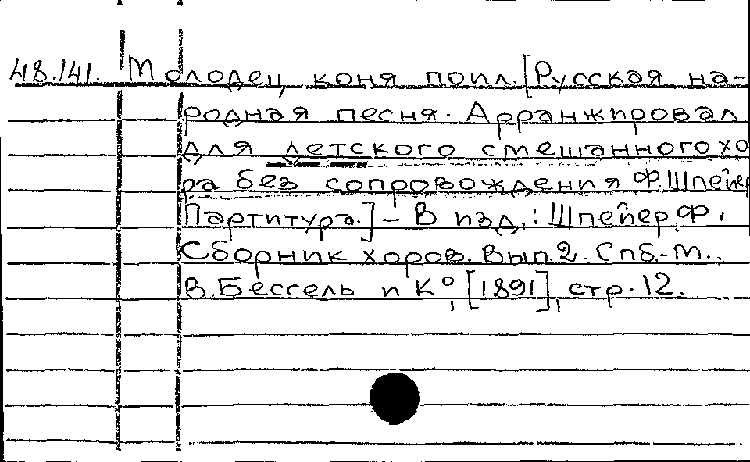 48.141. Молодец коня поил. [Русская на-
родная песня. Арранжировал
для детского смешанного хо
ра без сопровождения Ф. Шпейер
Партитура.] - В изд.: Шпейер Ф.
Сборник хоров. Вып. 2. Спб.-М.,
В. Бессель и К°, [1891], стр. 12.